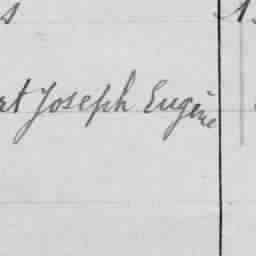 rt Joseph Eugène